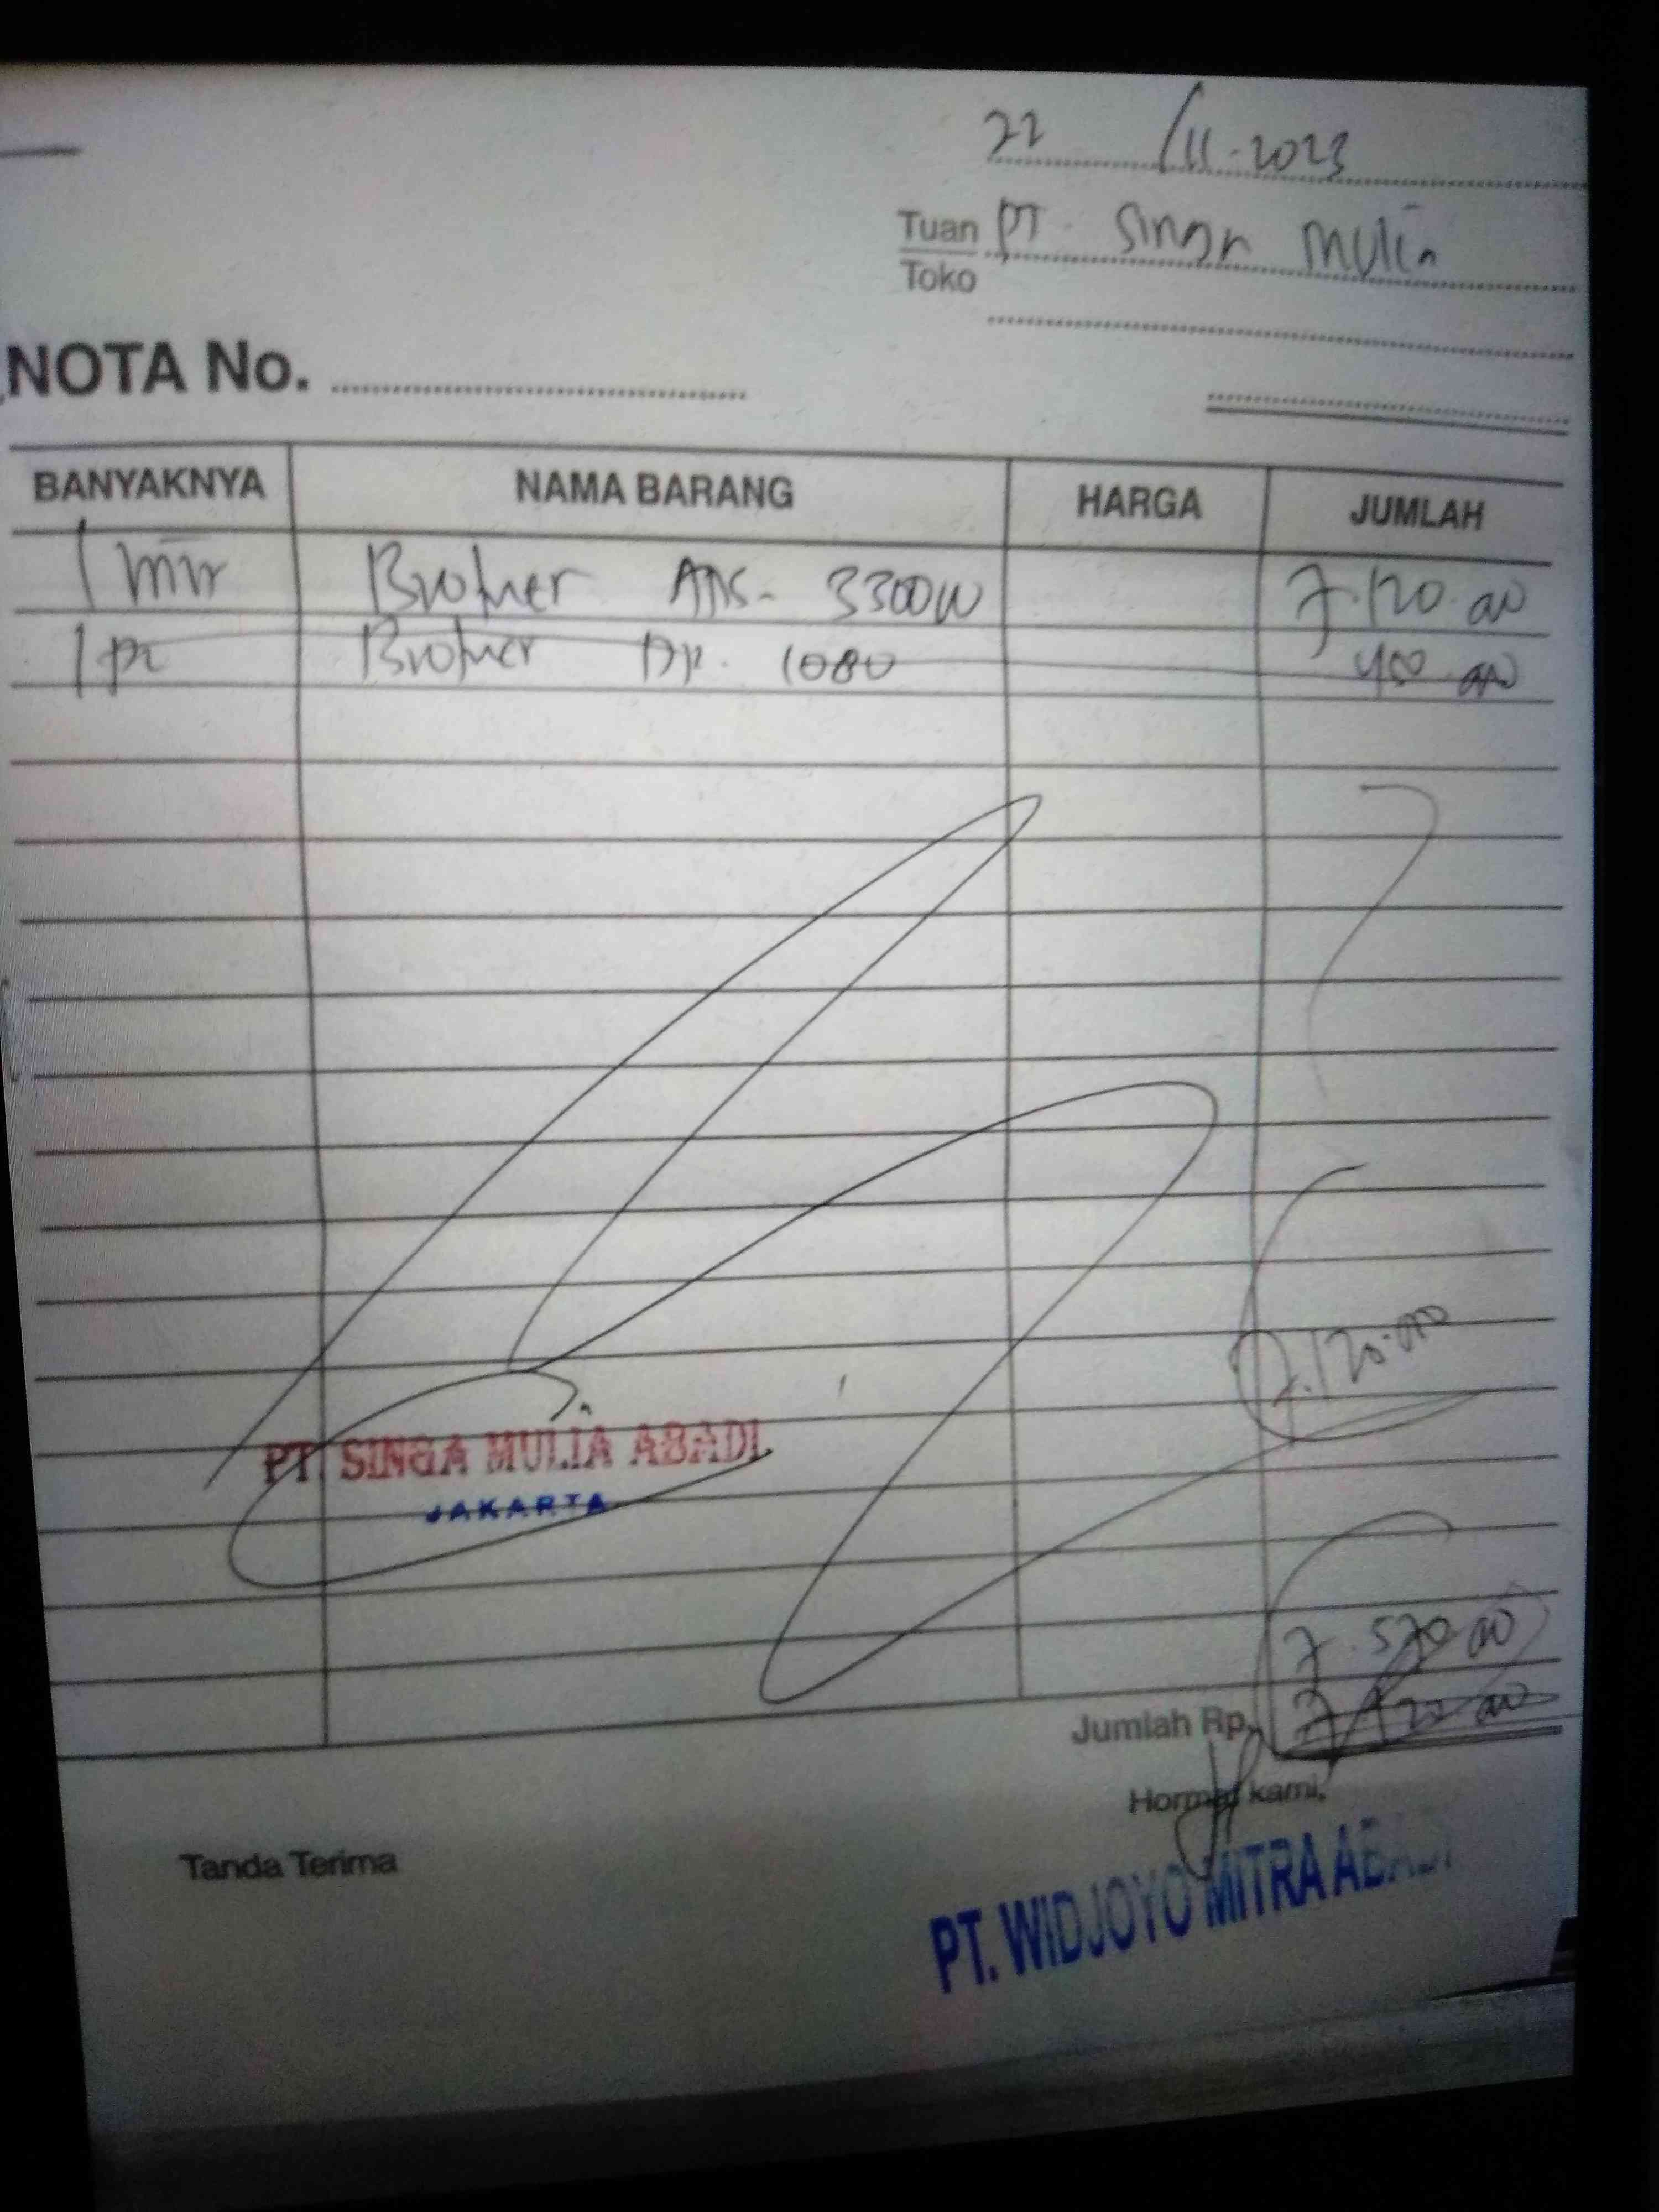 22 / 11-2023
Tuan PT. Singa Mulia
Toko
NOTA No.
BANYAKNYA NAMA BARANG HARGA JUMLAH
1 Brother ADS- 3300W 7.120.000
1 pc Brother 1080
7.120.000
PT. SINGA MULIA ABADI
JAKARTA
7.570.000
Jumlah Rp. 7.120.000
Hormat kami,
Tanda Terima
PT. WIDJOYO MITRA ABADI